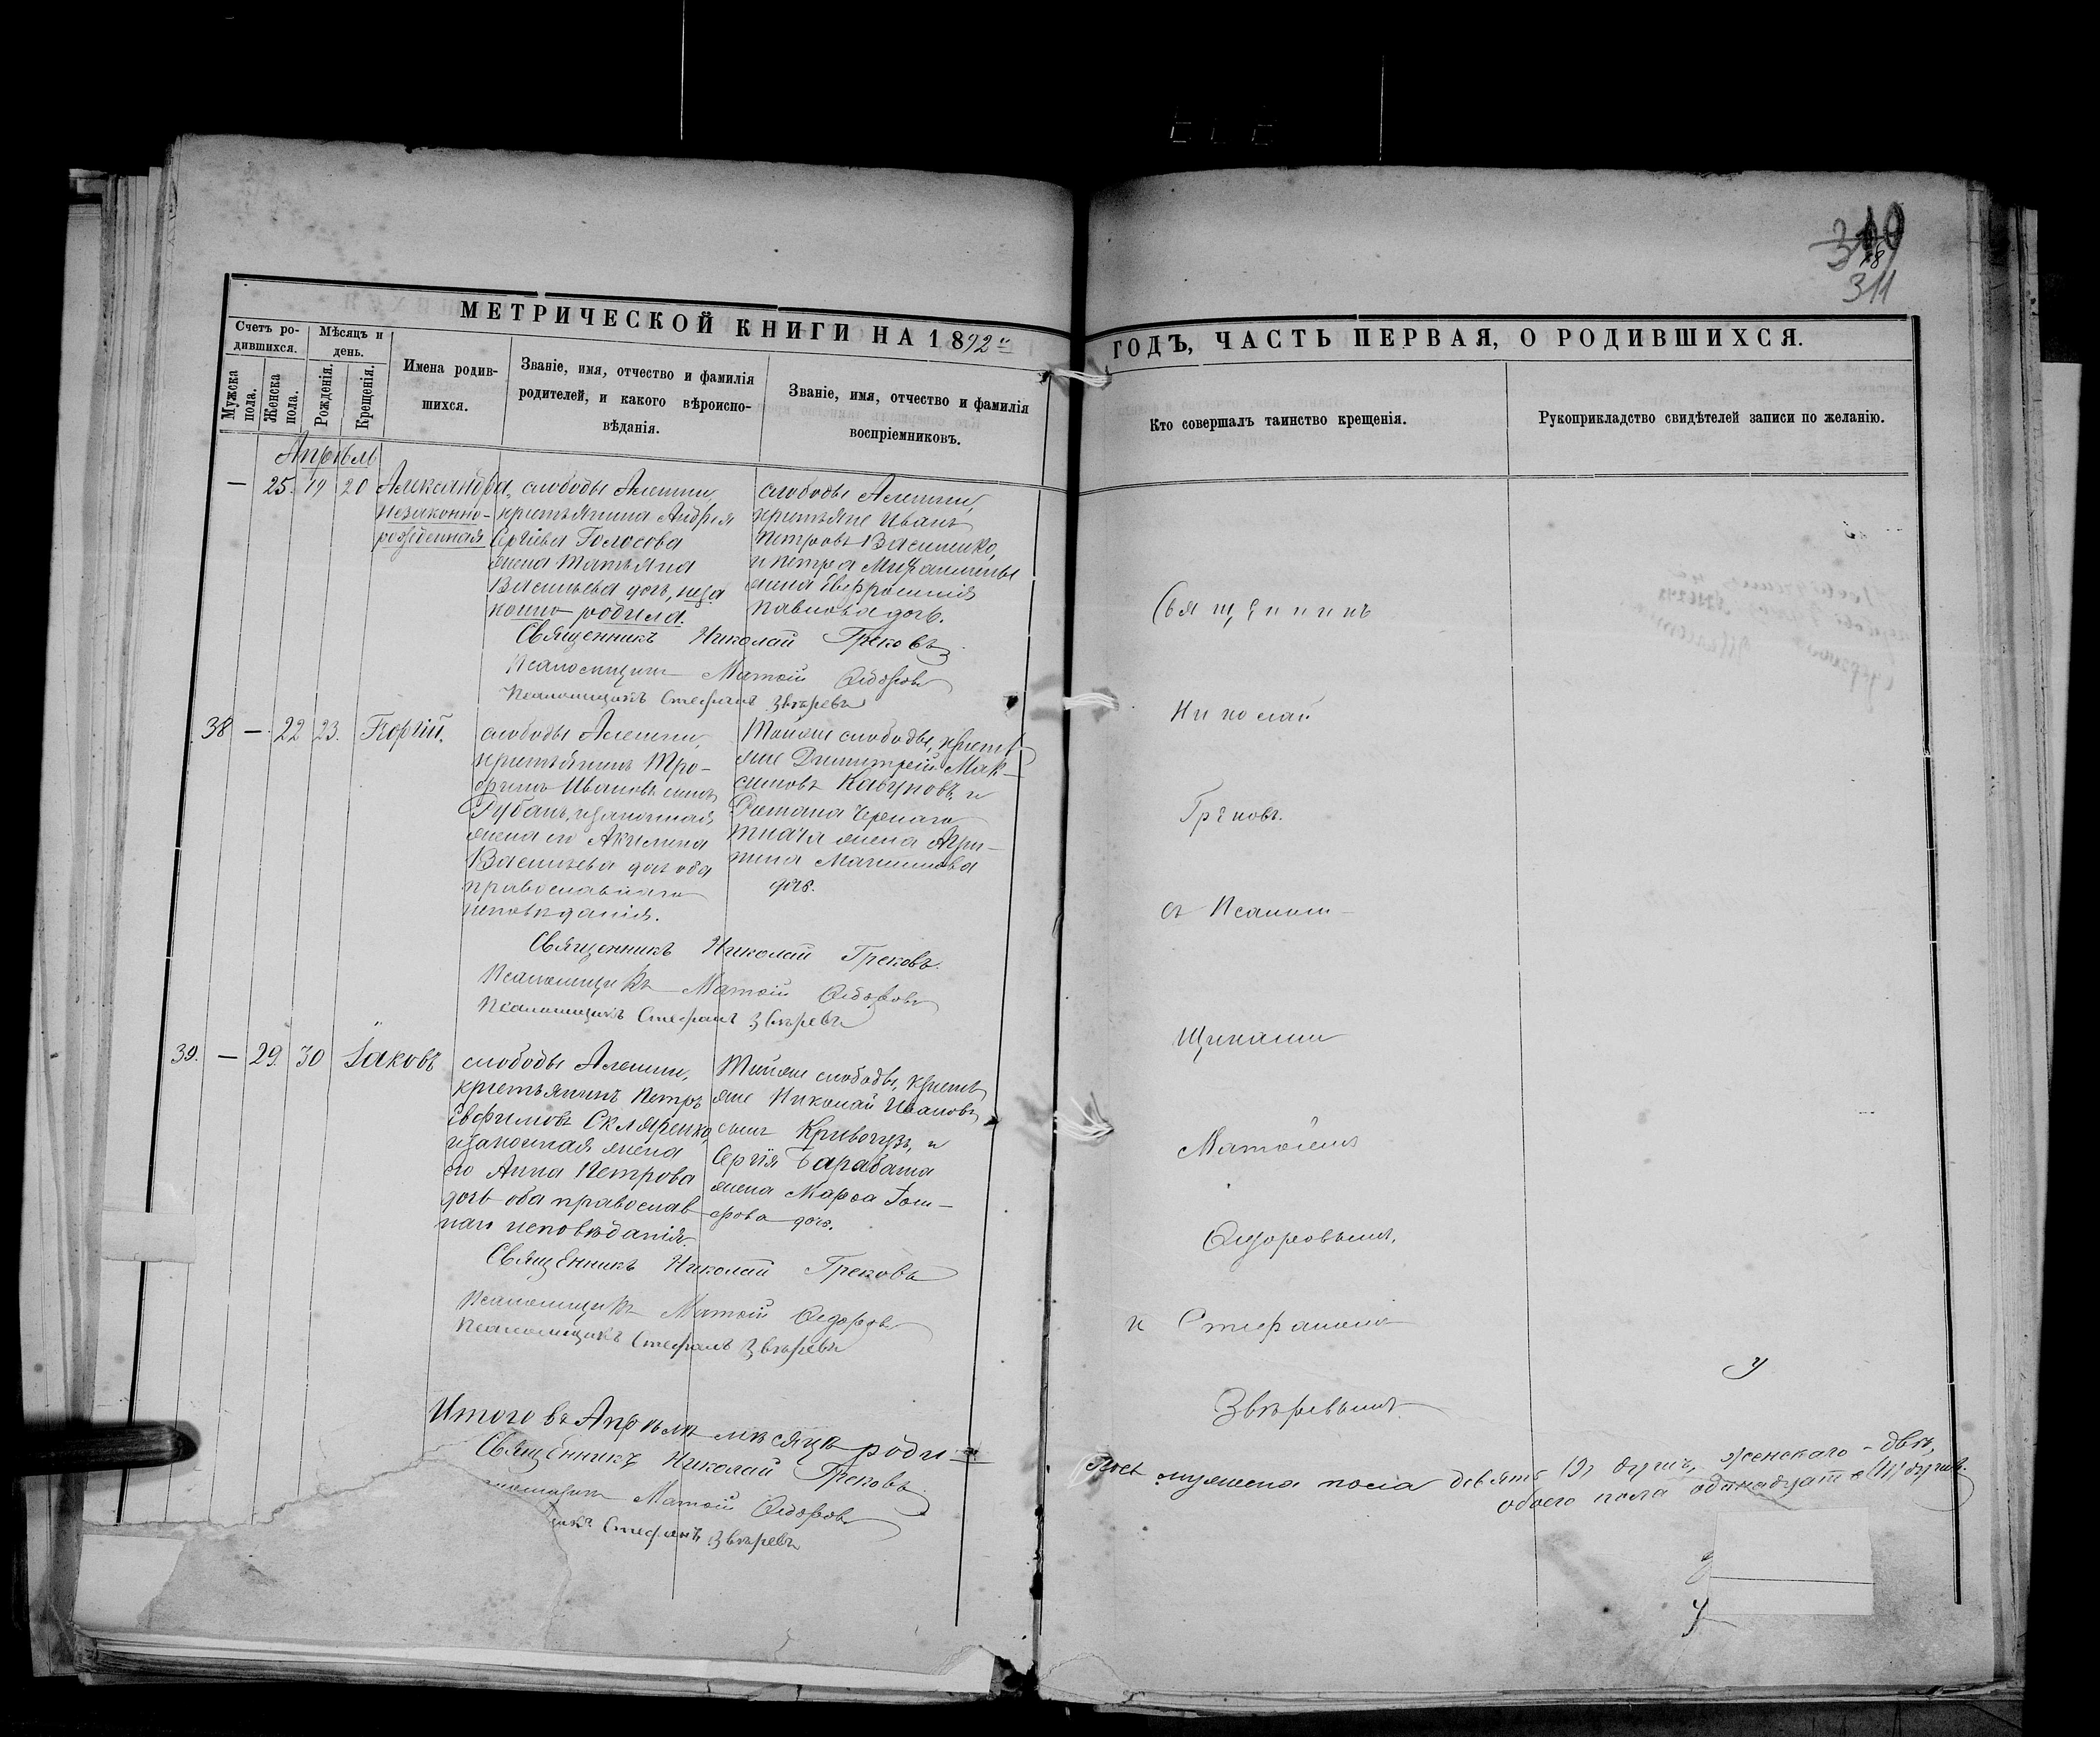 310
18
311
МЕТРИЧЕСКОЙ КНИГИ НА 1892 ГОДЪ, ЧАСТЬ ПЕРВАЯ, О РОДИВШИХСЯ.
Счетъ ро-
дившихся.
Мѣсяцъ и
день.
Мужска
пола.
Женска
пола.
Рожденія.
Крещенія.
Имена родив-
шихся.
Званіе, имя, отчество и фамилія
родителей, и какого вѣроиспо-
вѣданія.
Званіе, имя, отчество и фамилія
воспріемниковъ.
Кто совершалъ таинство крещенія.
Рукоприкладство свидѣтелей записи по желанію.
Апрѣль
— 25. 19 20
Александра,
незаконно-
рожденная
слободы Алешни,
крестьянина Андрея
Сергіева Голосова
жена Татьяна
Васильева дочь, неза
конно родила.
слободы Алешни,
крестьяне Иванъ
Петровъ Василенко,
и Петра
жена Евфросинія
Павлова дочь.
Священникъ Николай Грековъ
Псаломщикъ Матѳій Ѳедоровъ
Псаломщикъ Стефанъ Звѣревъ
38 — 22 23.
слободы Алешни,
крестьянинъ Тро-
фимъ Ивановъ сынъ
Рубанъ, и законная
жена его Акилина
Васильева дочь оба
православнаго
исповѣданія.
Тойже слободы, кресть
яне Димитрій Мак-
симовъ Кавуновъ, и
Романа Чернаго
Ткача жена Агри-
пина
дочь.
Священникъ Николай Грековъ.
Псаломщикъ Матѳій Ѳедоровъ
Псаломщикъ Стефанъ Звѣревъ
39. — 29. 30
Іаковъ
слободы Алешни,
крестьянинъ Петръ
Евфимовъ Скляренко,
и законная жена
его Анна Петрова
дочь оба православ
наго исповѣданія.
Тойже слободы, кресть
яне Николай Ивановъ
сынъ Кривогузъ, и
Сергія Барабаша
жена Марѳа Іоси-
фова дочь.
Священникъ Николай Грековъ
Псаломщикъ Матѳій Ѳедоровъ
Псаломщикъ Стефанъ Звѣревъ
Священникъ
Николай
Грековъ.
съ Псалом-
щиками
Матѳіемъ
Ѳедоровымъ.
и Стефаномъ
Звѣревымъ
Итого въ Апрѣлѣ мѣсяцѣ роди-
лось мужеска пола девять (9) душъ, женскаго - двѣ,
обоего пола одинадцать (11) душъ.
Священникъ Николай Грековъ
Матѳій Ѳедоровъ
Стефанъ Звѣревъ